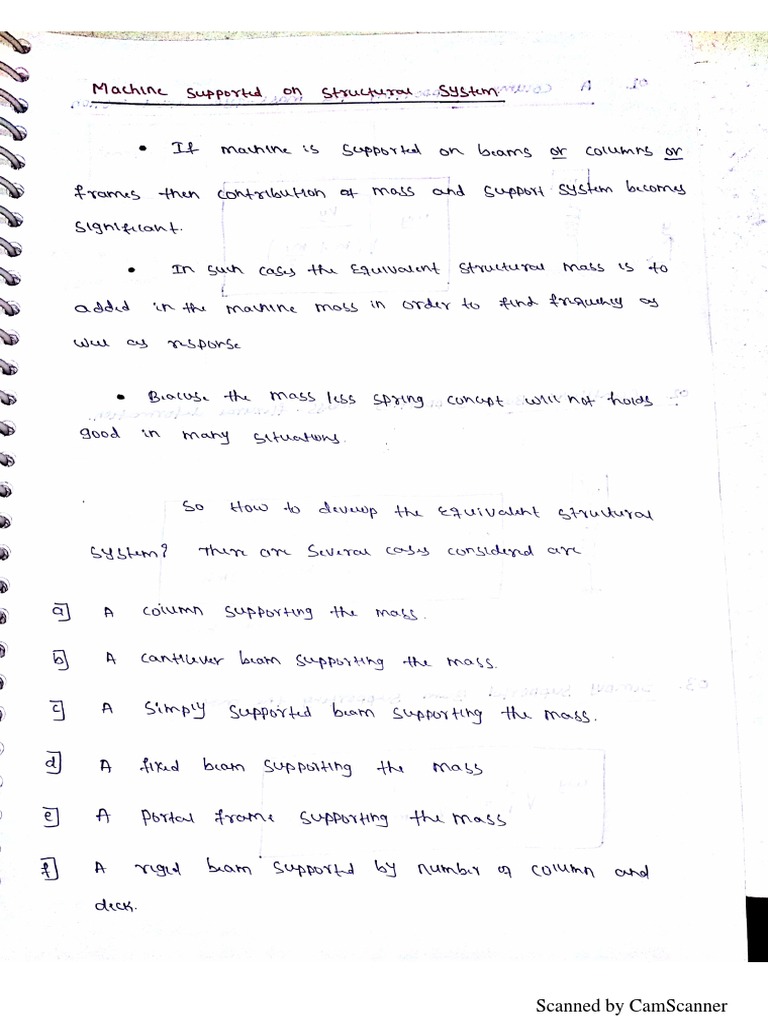 Machine supported on structural system
• If machine is supported on beams or columns or
frames then contribution of mass and support system becomes
significant.
• In such cases the equivalent structural mass is to
added in the machine mass in order to find frequency as
well as response
• Beacuse the mass less spring concept will not holds
good in many situations.
So How to develop the equivalent structural
system? There are several cases considered are
a] A column supporting the mass.
b] A cantilever beam supporting the mass.
c] A simply supported beam supporting the mass.
d] A fixed beam supporting the mass
e] A portal frame supporting the mass
f] A rigid beam supported by number of column and
deck.
Scanned by CamScanner